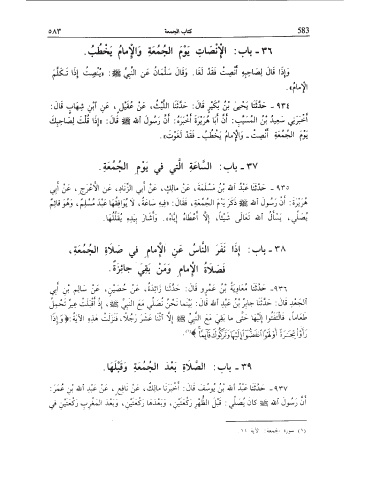 ٥٨٣ كتاب الجمعة 583
٣٦ - باب: الإِنْصَاتِ يَوْمَ الْجُمُعَةِ وَالإِمَامُ يَخْطُبُ.
وَإِذَا قَالَ لِصَاحِبِهِ أَنْصِتْ فَقَدْ لَغَا. وَقَالَ سَلْمَانُ عَنِ النَّبِيِّ ﷺ: «يُنْصِتُ إِذَا تَكَلَّمَ
الإِمَامُ».
٩٣٤ - حَدَّثَنَا يَحْيَى بْنُ بُكَيْرٍ قَالَ: حَدَّثَنَا اللَّيْثُ، عَنْ عُقَيْلٍ، عَنِ ابْنِ شِهَابٍ قَالَ:
أَخْبَرَنِي سَعِيدُ بْنُ الْمُسَيَّبِ: أَنَّ أَبَا هُرَيْرَةَ أَخْبَرَهُ: أَنَّ رَسُولَ اللهِ ﷺ قَالَ: «إِذَا قُلْتَ لِصَاحِبِكَ
يَوْمَ الْجُمُعَةِ أَنْصِتْ - وَالإِمَامُ يَخْطُبُ - فَقَدْ لَغَوْتَ».
٣٧ - باب: السَّاعَةِ الَّتِي فِي يَوْمِ الْجُمُعَةِ.
٩٣٥ - حَدَّثَنَا عَبْدُ اللهِ بْنُ مَسْلَمَةَ، عَنْ مَالِكٍ، عَنْ أَبِي الزِّنَادِ، عَنِ الأَعْرَجِ، عَنْ أَبِي
هُرَيْرَةَ: أَنَّ رَسُولَ اللهِ ﷺ ذَكَرَ يَوْمَ الْجُمُعَةِ، فَقَالَ: «فِيهِ سَاعَةٌ، لاَ يُوَافِقُهَا عَبْدٌ مُسْلِمٌ، وَهُوَ قَائِمٌ
يُصَلِّي، يَسْأَلُ اللهَ تَعَالَى شَيْئًا، إِلاَّ أَعْطَاهُ إِيَّاهُ». وَأَشَارَ بِيَدِهِ يُقَلِّلُهَا.
٣٨ - باب: إِذَا نَفَرَ النَّاسُ عَنِ الإِمَامِ فِي صَلاَةِ الْجُمُعَةِ،
فَصَلاَةُ الإِمَامِ وَمَنْ بَقِيَ جَائِزَةٌ.
٩٣٦ - حَدَّثَنَا مُعَاوِيَةُ بْنُ عَمْرٍو قَالَ: حَدَّثَنَا زَائِدَةُ، عَنْ حُصَيْنٍ، عَنْ سَالِمِ بْنِ أَبِي
الْجَعْدِ قَالَ: حَدَّثَنَا جَابِرُ بْنُ عَبْدِ اللهِ قَالَ: بَيْنَمَا نَحْنُ نُصَلِّي مَعَ النَّبِيِّ ﷺ، إِذْ أَقْبَلَتْ عِيرٌ تَحْمِلُ
طَعَامًا، فَالْتَفَتُوا إِلَيْهَا حَتَّى مَا بَقِيَ مَعَ النَّبِيِّ ﷺ إِلاَّ اثْنَا عَشَرَ رَجُلاً، فَنَزَلَتْ هَذِهِ الآيَةُ: ﴿وَإِذَا
رَأَوْا تِجَارَةً أَوْ لَهْوًا انْفَضُّوا إِلَيْهَا وَتَرَكُوكَ قَائِمًا﴾ (١).
٣٩ - باب: الصَّلاَةِ بَعْدَ الْجُمُعَةِ وَقَبْلَهَا.
٩٣٧ - حَدَّثَنَا عَبْدُ اللهِ بْنُ يُوسُفَ قَالَ: أَخْبَرَنَا مَالِكٌ، عَنْ نَافِعٍ، عَنْ عَبْدِ اللهِ بْنِ عُمَرَ:
أَنَّ رَسُولَ اللهِ ﷺ كَانَ يُصَلِّي: قَبْلَ الظُّهْرِ رَكْعَتَيْنِ، وَبَعْدَهَا رَكْعَتَيْنِ، وَبَعْدَ الْمَغْرِبِ رَكْعَتَيْنِ فِي
(١) سورة الجمعة: الآية ١١